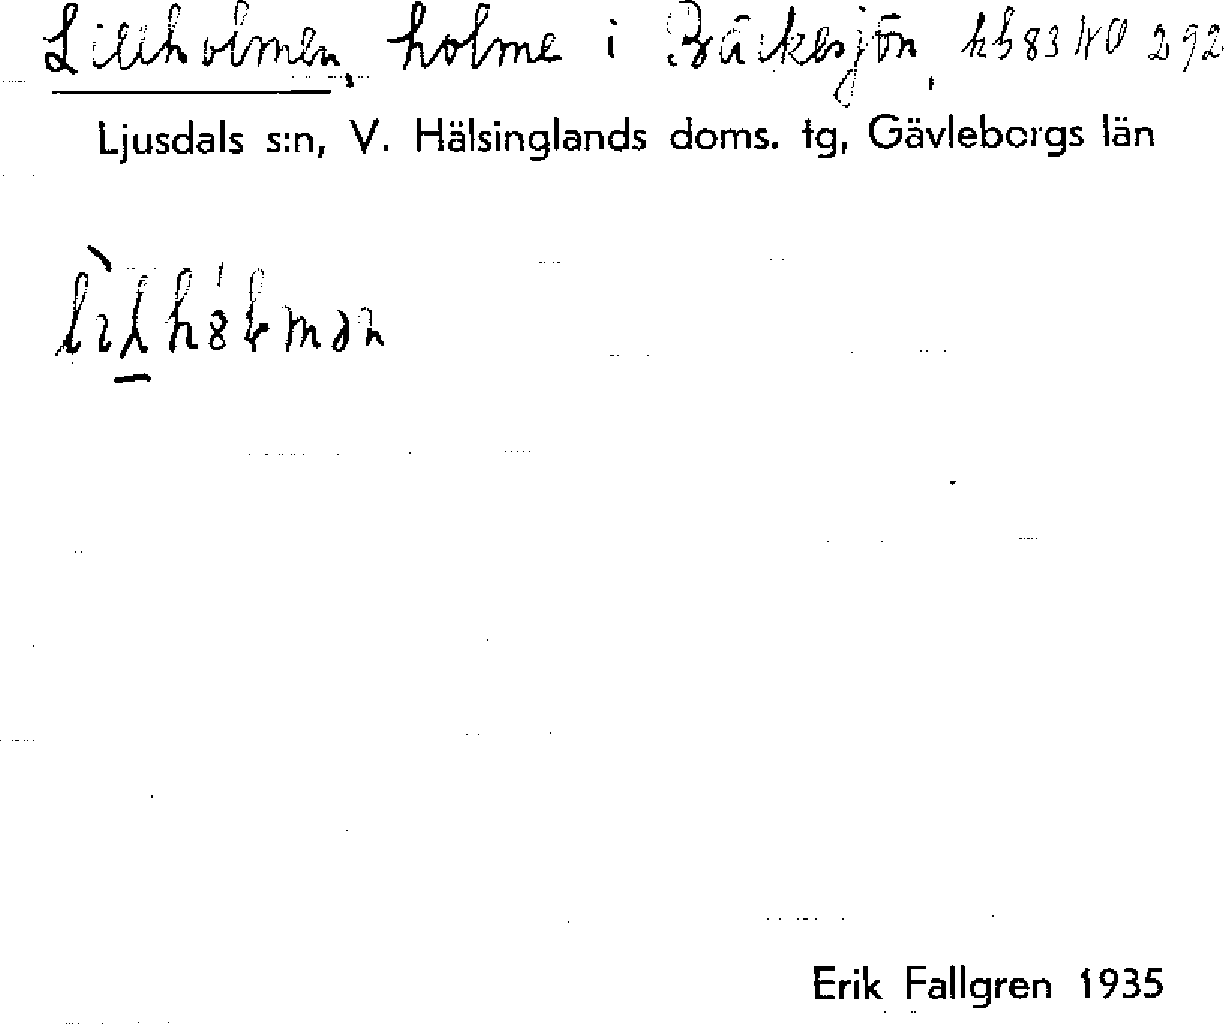 Lillholmen, holme i Bäckesjön, hb 83 NO 292
Ljusdals s:n, V. Hälsinglands doms. tg, Gävleborgs län
Erik Fallgren 1935